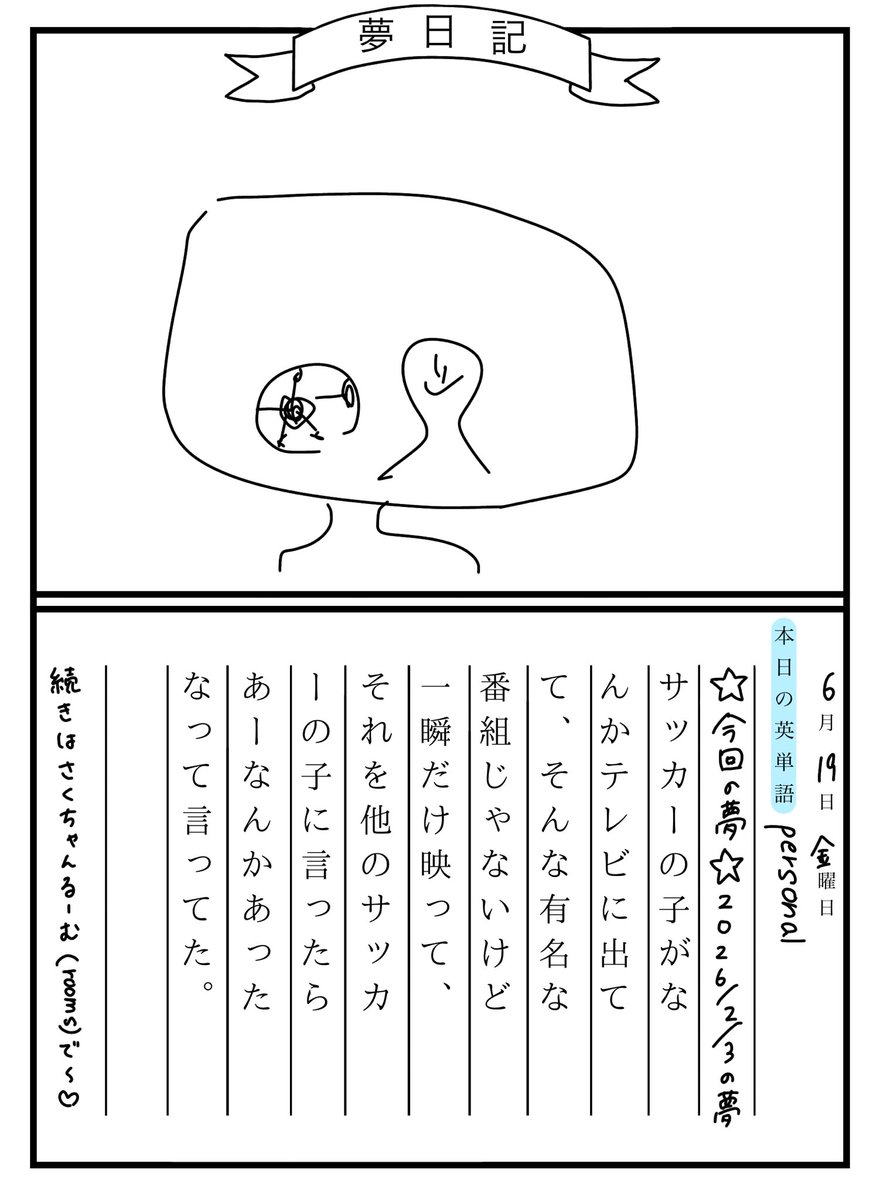 夢日記
6月19日金曜日
本日の英単語 personal
☆今回の夢☆2026/2/3の夢
サッカーの子がな
んかテレビに出て
て、そんな有名な
番組じゃないけど
一瞬だけ映って、
それを他のサッカ
ーの子に言ったら
あーなんかあった
なって言ってた。
続きはさくちゃんるーむ(rooms)で～♡